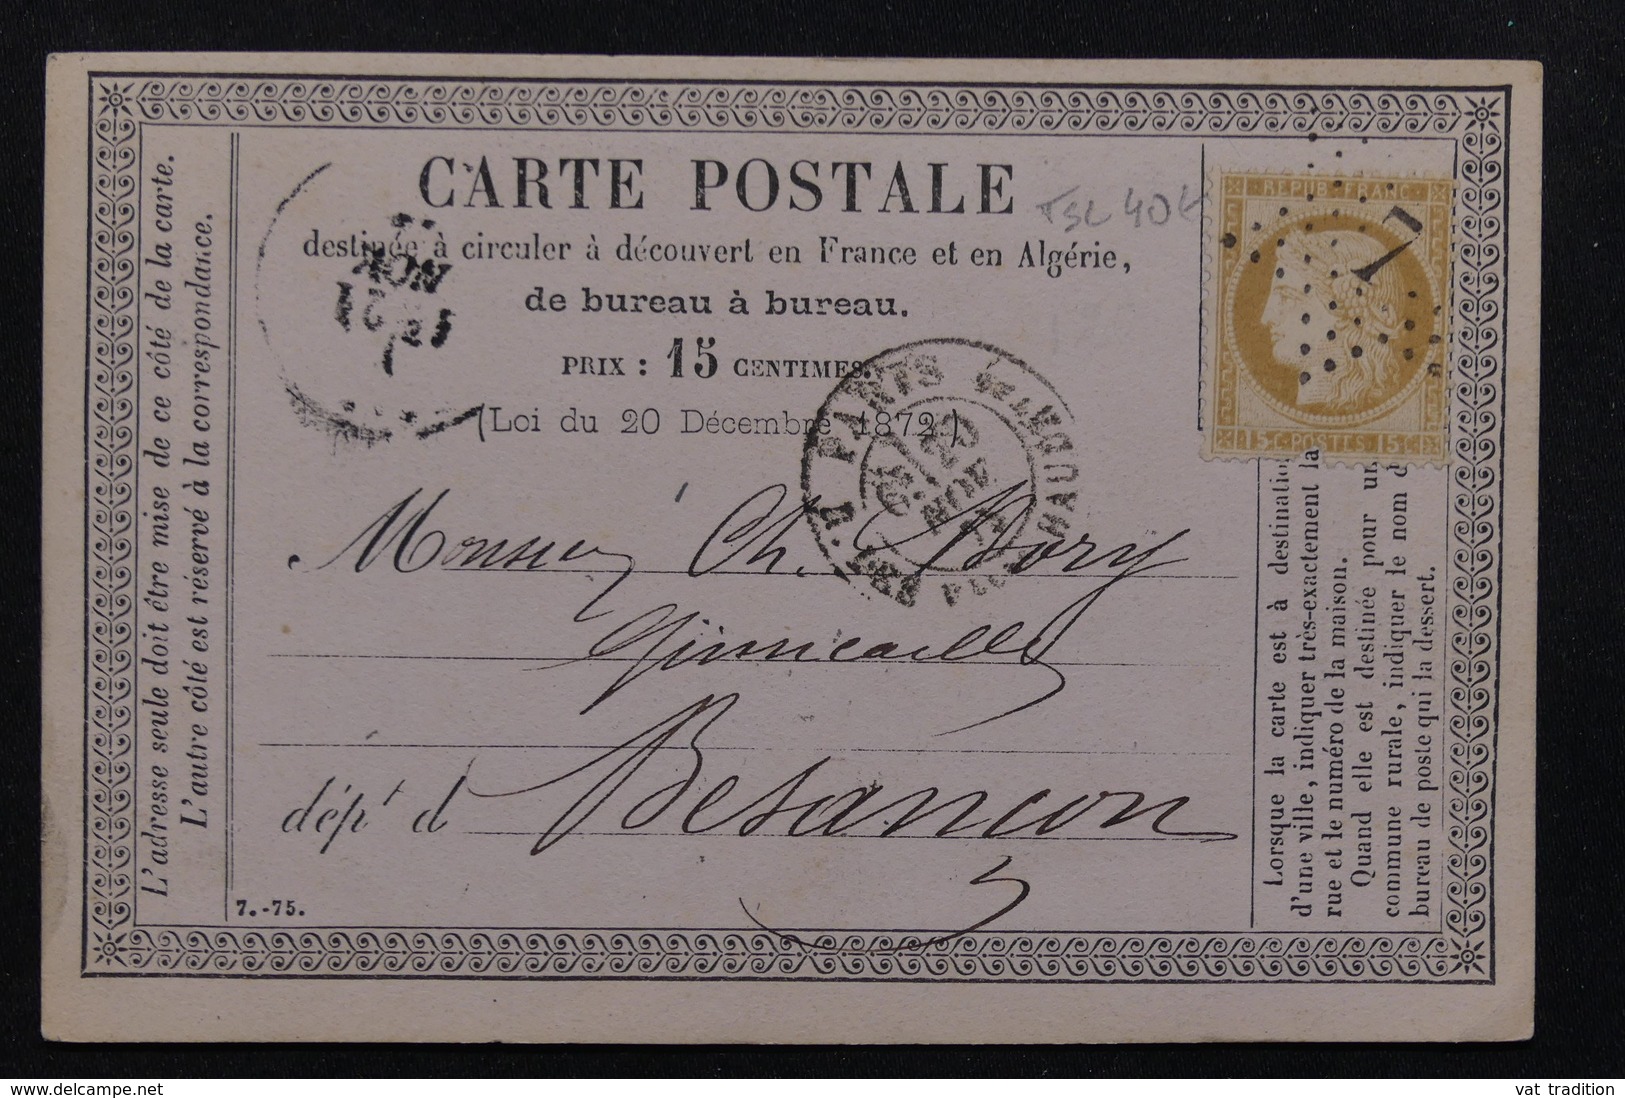 CARTE POSTALE
destinée à circuler à découvert en France et en Algérie,
de bureau à bureau.
PRIX : 15 CENTIMES.
(Loi du 20 Décembre 1872)
L'adresse seule doit être mise de ce côté de la carte.
L'autre côté est réservé à la correspondance.
NOV
PARIS
NOV
REPUB FRANC
7
15 C · POSTES · 15 C
Monsieur Ch. Bory
Quincailler
dépt d Besançon
Lorsque la carte est à destination
d'une ville, indiquer très-exactement la
rue et le numéro de la maison.
Quand elle est destinée pour un
commune rurale, indiquer le nom d
bureau de poste qui la dessert.
7.-75.
www.delcampe.net
vat tradition